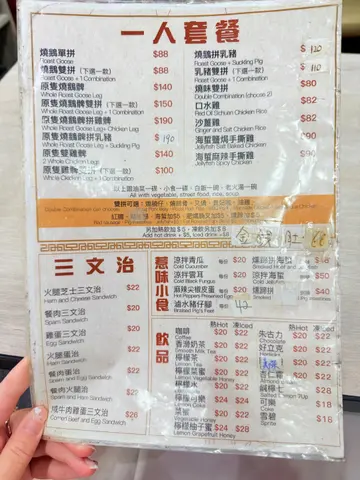 一人套餐
燒鵝單拼 $88
Roast Goose
燒鵝雙拼 (下選一款) $88
Roast Goose + 1 Combination
原隻燒鵝髀 $140
Whole Roast Goose Leg
原隻燒鵝髀雙拼 $150
Whole Roast Goose Leg + 1 Combination
原隻燒鵝髀拼雞髀 $190
Whole Roast Goose Leg + Chicken Leg
原隻燒鵝髀拼乳豬 $190
Whole Roast Goose Leg + Suckling Pig
原隻雙雞髀 $140
2 Whole Chicken Legs
原隻雞髀雙拼 $100
Whole Chicken Leg + 1 Combination
燒鵝拼乳豬 $120
Roast Goose + Suckling Pig
乳豬雙拼 (下選一款) $110
Suckling Pig + 1 Combination
燒味雙拼 $80
Double Combination (choose 2)
口水雞 $82
Red Oil Sichuan Chicken Rice
沙薑雞 $82
Ginger and Salt Chicken Rice
海蜇鹽焗手撕雞 $90
Jellyfish Salt Baked Chicken
海蜇麻辣手撕雞 $90
Jellyfish Spicy Chicken
以上跟油菜一碟、小食一碟、白飯一碗、老火湯一碗
All with vegetable, street food, rice, soup
另加熱飲加$5,凍飲另加$8
Add hot drink + $5, iced drink + $8
三文治
火腿芝士三文治 $22
Ham and Cheese Sandwich
餐肉三文治 $22
Spam Sandwich
雞蛋三文治 $22
Egg Sandwich
火腿蛋治 $22
Ham and Egg Sandwich
餐肉蛋治 $22
Spam and Egg Sandwich
餐肉火腿治 $22
Spam and Ham Sandwich
咸牛肉雞蛋三文治 $26
Corned Beef and Egg Sandwich
惹味小食
涼拌青瓜 $20
Cold Cucumber
涼拌雲耳 $20
Cold Black Fungus
麻辣尖椒皮蛋 $20
Hot Peppers Preserved Egg
滷水豬仔腳 42
Braised Pig's Feet
飲品
熱Hot 凍Iced
咖啡 $20 $22
Coffee
香滑奶茶 $20 $22
Smooth Milk Tea
檸檬茶 $20 $22
檸檬水 $20 $22
檸檬可樂 $24 $24
Lemon Coke
菜蜜 $20 $22
Vegetable Honey
檸檬柚子蜜 $24 $28
Lemon Grapefruit Honey
熱Hot 凍Iced
朱古力 $20 $22
Chocolate
好立克 $20 $22
Horlicks
$20 $22
杏仁霜 $20 $22
鹹檸七 $22
Salted Lemon 7Up
可樂 $18
Coke
雪碧 $16
Sprite